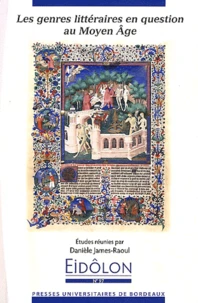 Les genres littéraires en question
au Moyen Âge
Études réunies par
Danièle James-Raoul
EIDÔLON
PRESSES UNIVERSITAIRES DE BORDEAUX